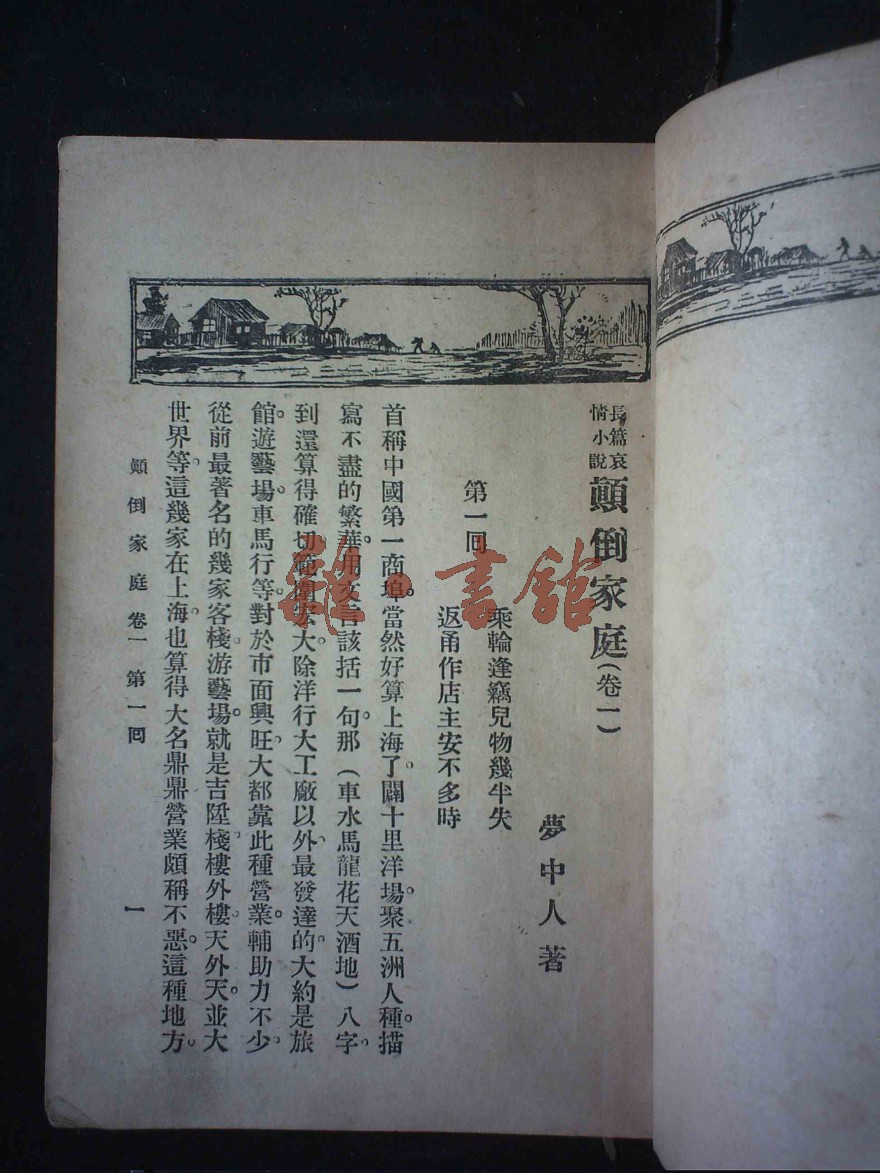 長篇哀情小說 顛倒家庭(卷一)
夢中人著
第一回 乘輪逢竊兒物幾半失
返甬作店主安不多時
首稱中國第一商埠。當然好算上海了。闢十里洋場。聚五洲人種。描
寫不盡的繁華。用文言該括一句。那(車水馬龍花天酒地)八字。
到還算得確切。範圍太大。除洋行大工廠以外。最發達的。大約是旅
館。遊藝場。車馬行等。對於市面興旺。大都靠此種營業。輔助力不少。
從前最著名的幾家客棧。游藝場。就是吉陞棧。樓外樓。天外天。並大
世界等。這幾家在上海。也算得大名鼎鼎。營業頗稱不惡。這種地方。
顛倒家庭 卷一 第一回 一
雜·書館